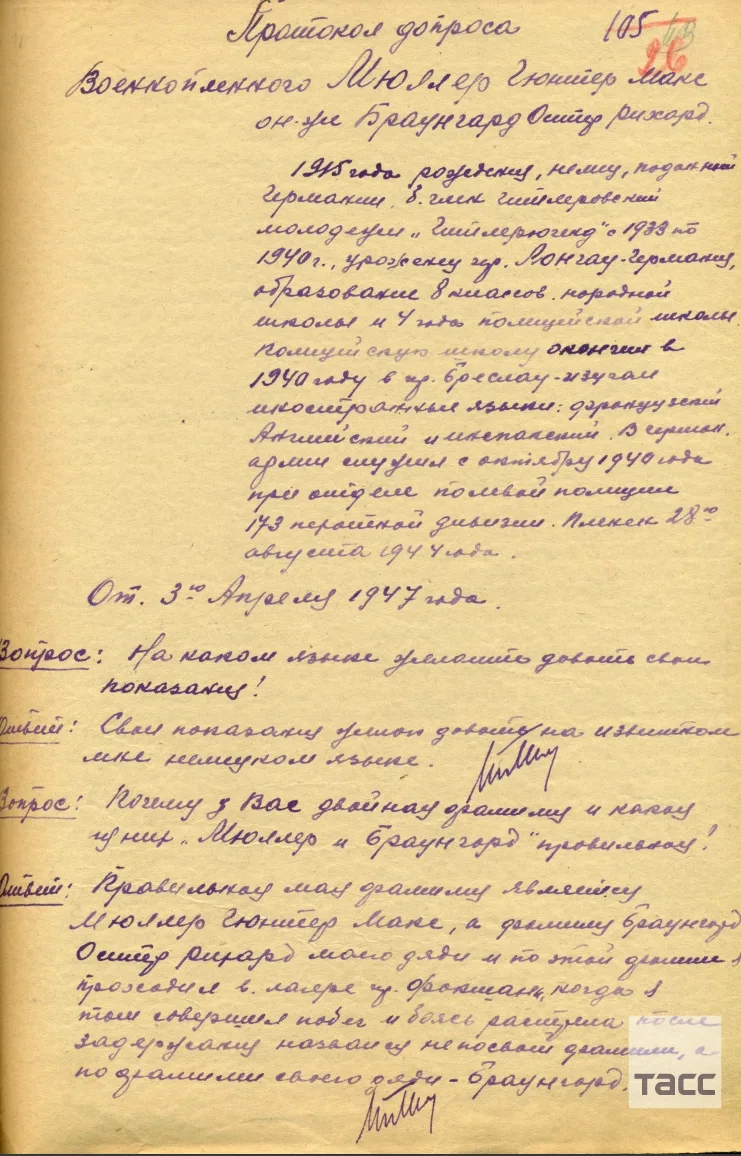 Протокол допроса 105
26
Военнопленного Мюллер Гюнтер Макс
он-же Браунгард Остер Рихард.
1915 года рождения, немец, подданный
Германии, б. член гитлеровский
молодежи "Гитлерюгенд" с 1933 по
1940 г., уроженец гр. Лонгау-Германия,
образование 8 классов народной
школы и 4 года полицейской школы
полицейскую школу окончил в
1940 году в гр. Бреслау-изучал
иностранные языки: французский
Английский и испанский. В герман.
армии служил с октября 1940 года
при отделе полевой полиции
173 пехотной дивизии. Пленен 28го
августа 1944 года.
От. 3го Апреля 1947 года.
Вопрос: На каком языке желаите довать свои
показания!
Ответ: Свои показания желаю довать на известном
мне немецком языке.
Вопрос: Почему у Вас двойная фамилия и какая
из них "Мюллер и Браунгорд" правильная!
Ответ: Правильная моя фамилия является
Мюллер Гюнтер Макс, а фамилия Браунгорд
Остер Рихард моего дяди и по этой фамилии я
проходил в лагере гр. Фокшани, когда я
там совершил побег и боясь растрела после
задержания назвался не по своей фамилии, а
по фамилии своего дяди - Браунгорд.
ТАСС